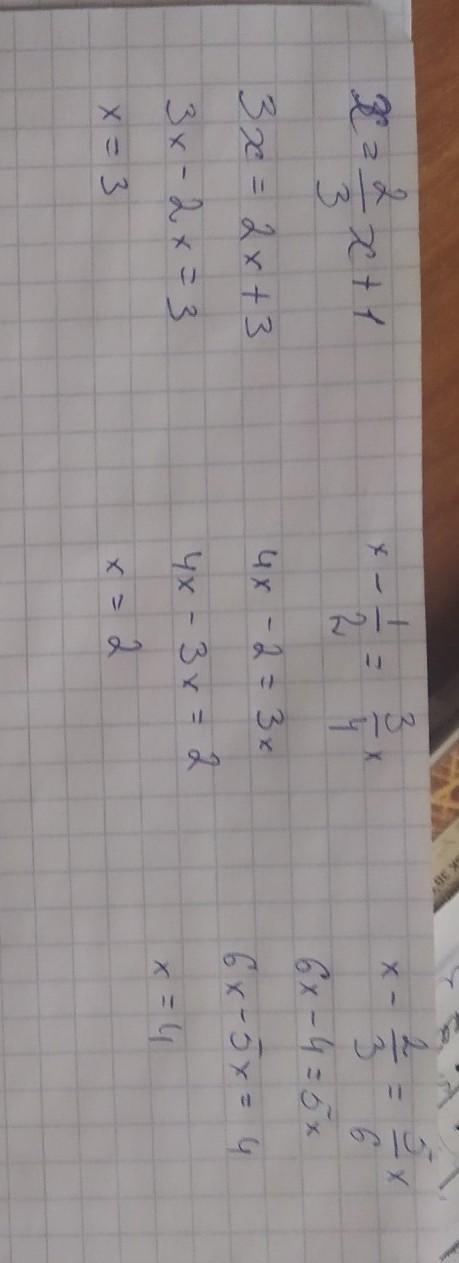 x = 2/3 x + 1
3x = 2x + 3
3x - 2x = 3
x = 3
x - 1/2 = 3/4 x
4x - 2 = 3x
4x - 3x = 2
x = 2
x - 2/3 = 5/6 x
6x - 4 = 5x
6x - 5x = 4
x = 4